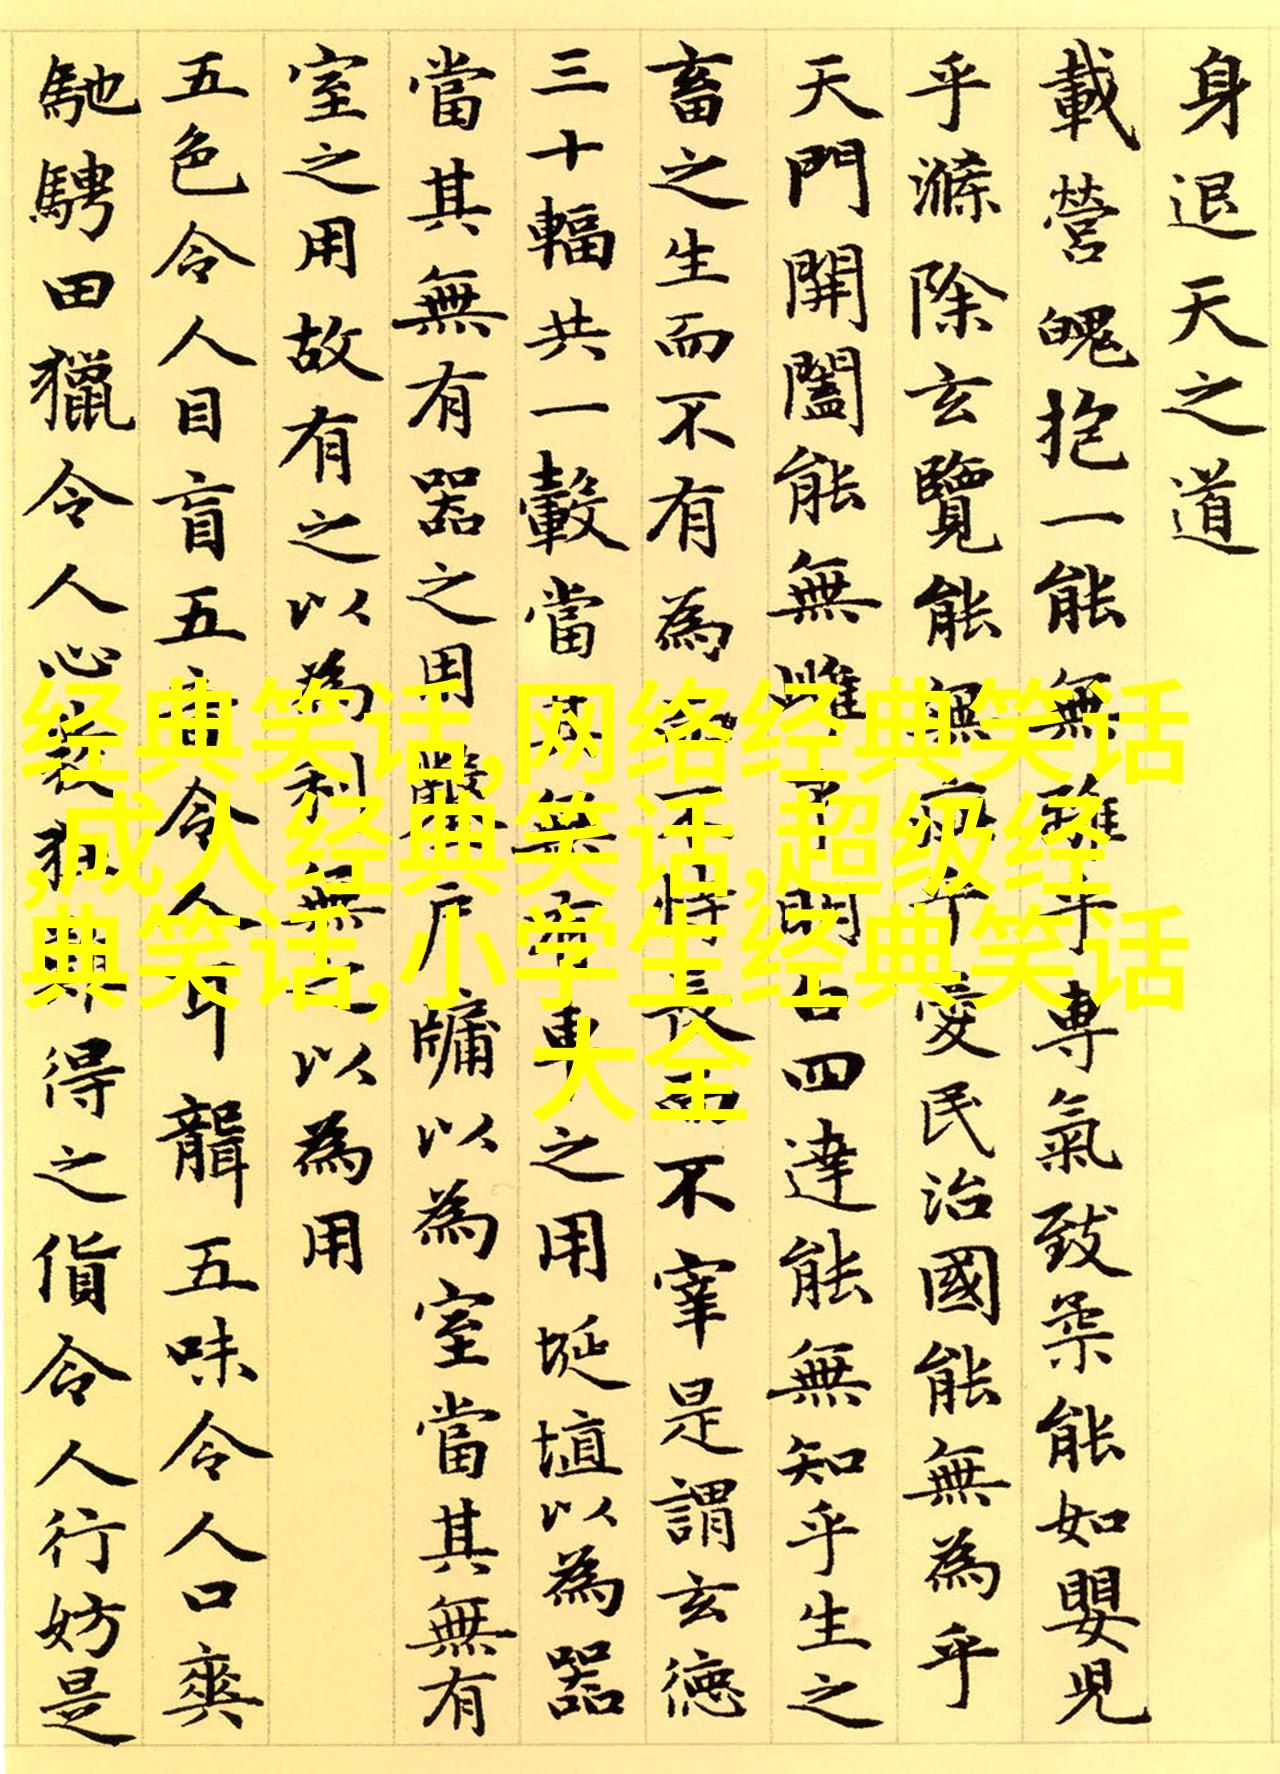 身退天之道
載營魄抱一能無離乎專氣致柔能如嬰兒
乎滌除玄覽能無疵乎愛民治國能無為乎
天門開闔能無雌乎明白四達能無知乎生之
畜之生而不有為而不恃長而不宰是謂玄德
三十輻共一轂當其無有車之用埏埴以為器
當其無有器之用鑿戶牖以為室當其無有
室之用故有之以為利無之以為用
五色令人目盲五音令人耳聾五味令人口爽
馳騁田獵令人心發狂難得之貨令人行妨是
经典笑话,网络经典笑话
,成人经典笑话,超级经
典笑话,小学生经典笑话
大全